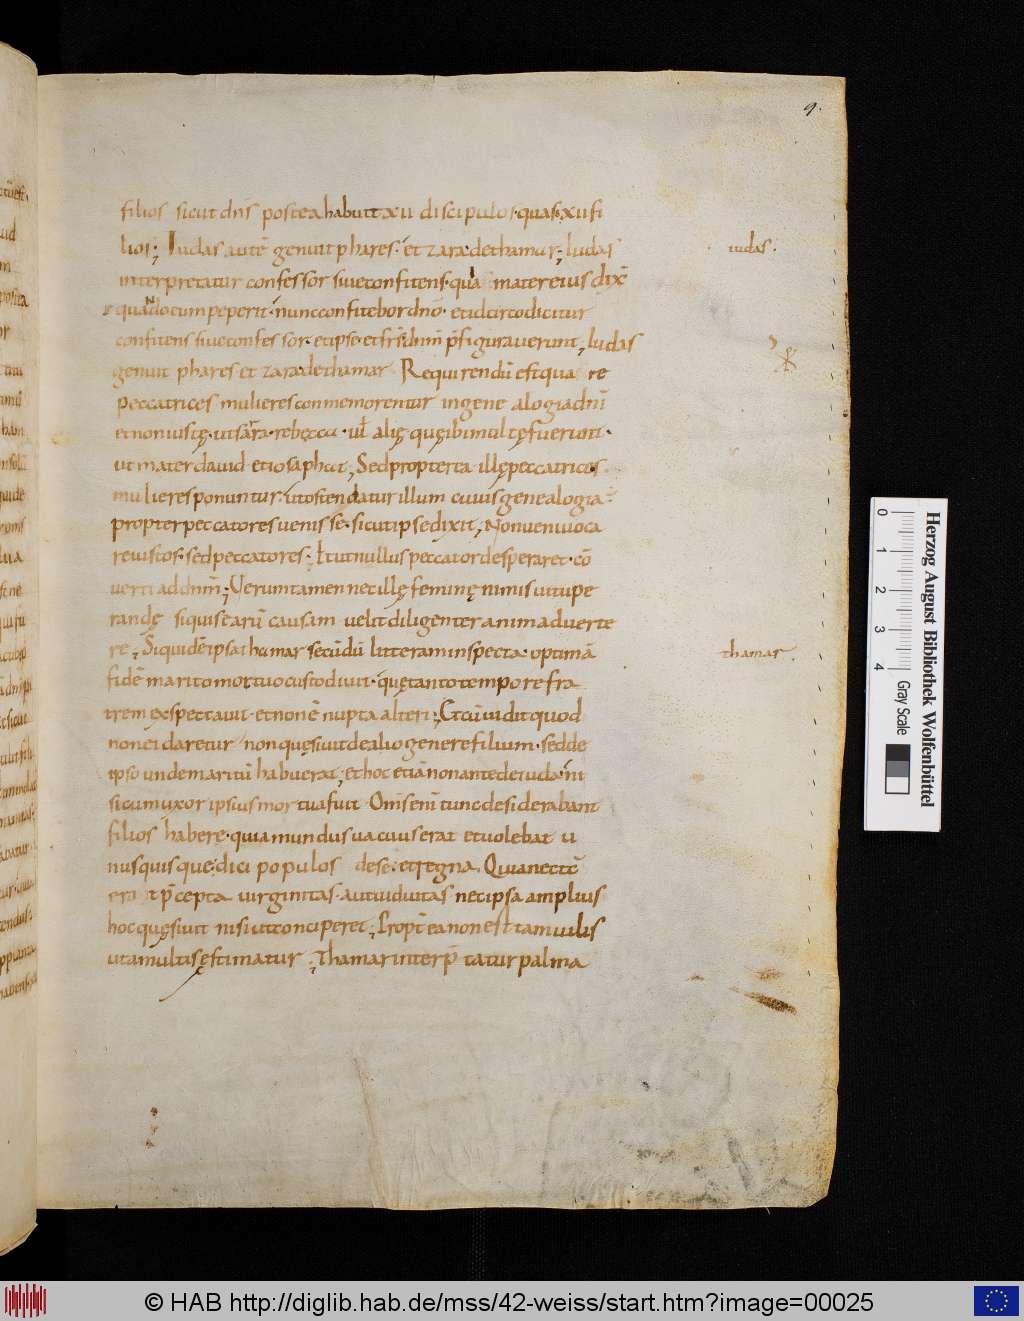 9.
filios sicut dn̄s postea habuit xii discipulos · quasi xii fi
lios ; Iudas autē genuit phares · et zara · de thamar ; Iudas
iudas .
interpretatur confessor siue confitens · quia mater eius dix̄
quando cum peperit · nunc confitebor dn̄o · et idcirco dicitur
confitens siue confessor · et ipse et frs̄ dn̄m p̄figurauerunt ; Iudas
genuit phares et zara · de thamar Requirendū est qua re
peccatrices mulieres conmemorentur in genealogia dn̄i
et non iustę · ut sarra · rebecca · uł alię quę ibi multę fuerunt ·
ut mater dauid et iosaphat ; Sed propterea illę peccatrices
mulieres ponuntur · ut ostendatur illum cuius genealogia
propter peccatores uenisse · sicut ipse dixit ; Non ueni uoca
re iustos · sed peccatores ; Et ut nullus peccator desperaret · cō
uerti ad dn̄m ; Ueruntamen nec illę feminę nimis uitupe
randę si quis earū causam uelit diligenter animaduerte
re ; Siquidē ipsa thamar secundū litteram inspecta · optimā
thamar .
fidē marito mortuo custodiuit · quę tanto tempore fra
trem exspectauit · et non ē nupta alteri ; Et cū uidit quod
non ei daretur non quęsiuit de alio genere filium · sed de
ipso unde maritū habuerat ; et hoc etiā non ante de iuda · ni
si cum uxor ipsius mortua fuit Om̄s enī tunc desiderabant
filios habere · quia mundus uacuus erat et uolebat u
nusquisque dici populos de se · et regna . Quia nec tc̄
p̄cepta uirginitas · aut uiduitas nec ipsa amplius
hoc quęsiuit nisi ut conciperet ; Propt̄ ea non est tam uilis
ut a multis ęstimatur ; Thamar interp̄tatur palma
Herzog August Bibliothek Wolfenbüttel
0 1 2 3 4
Gray Scale
© HAB http://diglib.hab.de/mss/42-weiss/start.htm?image=00025